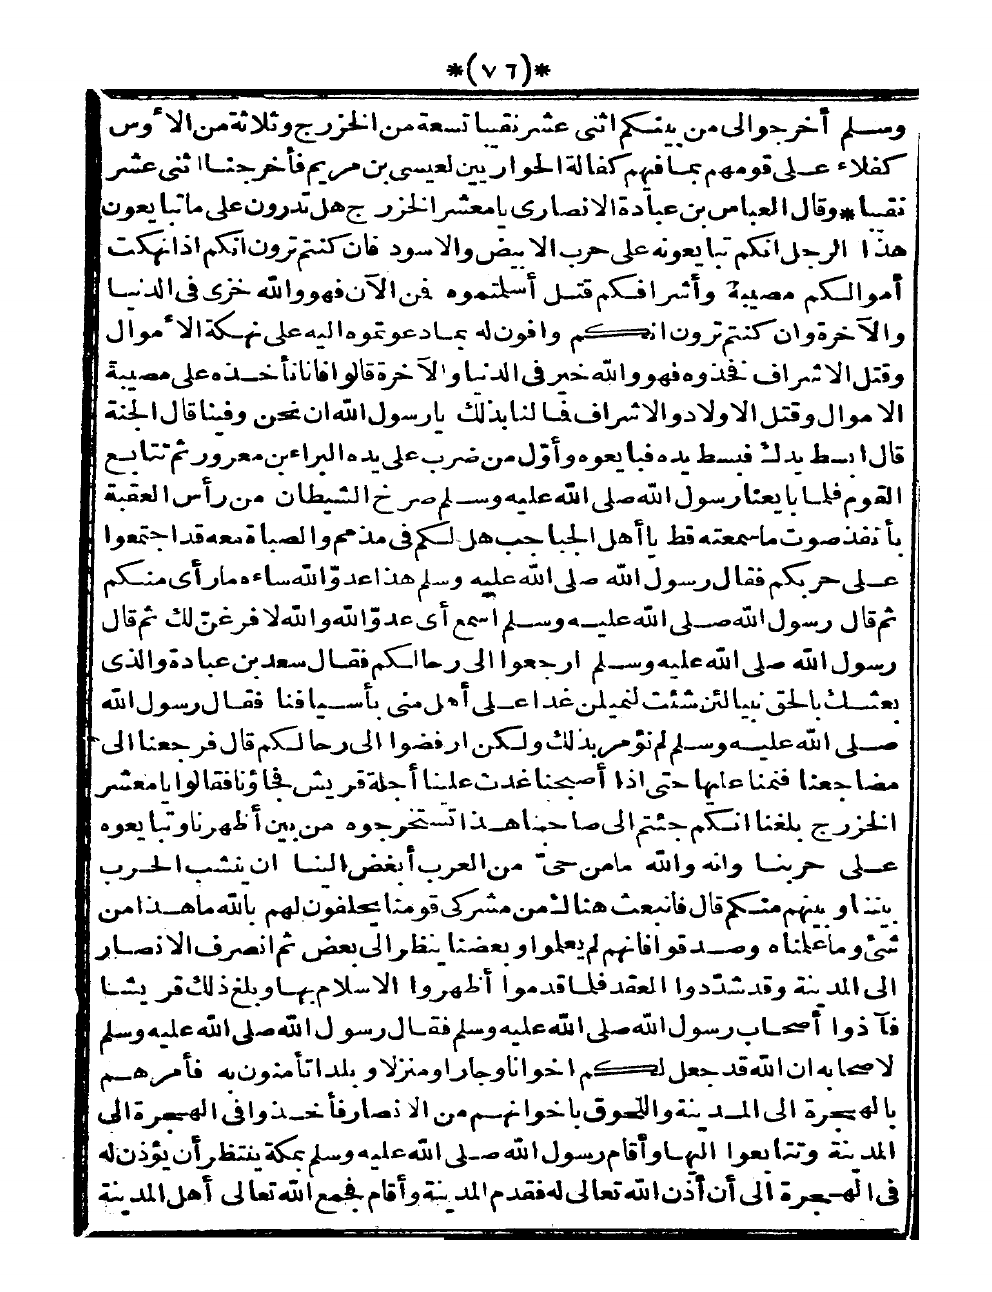 *(٧٦)*
وسلم أخرجوا الى من بينكم اثنى عشر نقيبا تسعة من الخزرج وثلاثة من الأوس
كفلاء على قومهم بما فيهم كفالة الحواريين لعيسى بن مريم فأخرجنا اثنى عشر
نقيبا * وقال العباس بن عبادة الانصارى يا معشر الخزرج هل تدرون على ما تبايعون
هذا الرجل انكم تبايعونه على حرب الابيض والاسود فان كنتم ترون انكم اذا نهكت
أموالكم مصيبة وأشرافكم قتل أسلتموه فمن الآن فهو والله خزى فى الدنيا
والآخرة وان كنتم ترون انكم وافون له بما دعوتموه اليه على نهكة الأموال
وقتل الاشراف فخذوه فهو والله خير فى الدنيا والآخرة قالوا فانا نأخذه على مصيبة
الاموال وقتل الاولاد والاشراف فما لنا بذلك يارسول الله ان نحن وفينا قال الجنة
قال ابسط يدك فبسط يده فبايعوه وأوّل من ضرب على يده البراء بن معرور ثم تتابع
القوم فلما بايعنا رسول الله صلى الله عليه وسلم صرخ الشيطان من رأس العقبة
بأنفذ صوت ما سمعته قط يا أهل الجباجب هل لكم فى مذمم والصباة معه قد اجتمعوا
على حربكم فقال رسول الله صلى الله عليه وسلم هذا عدوّ الله ساءه ما رأى منكم
ثم قال رسول الله صلى الله عليه وسلم اسمع أى عدوّ الله والله لا فرغنّ لك ثم قال
رسول الله صلى الله عليه وسلم ارجعوا الى رحالكم فقال سعد بن عبادة والذى
بعثك بالحق نبيا لئن شئت لنميلن غدا على أهل منى بأسيافنا فقال رسول الله
صلى الله عليه وسلم لم نؤمر بذلك ولكن ارفضوا الى رحالكم قال فرجعنا الى
مضاجعنا فنمنا عليها حتى اذا أصبحنا غدت علينا أجلة قريش فجاؤنا فقالوا يا معشر
الخزرج بلغنا انكم جئتم الى صاحبنا هذا تستخرجوه من بين أظهرنا وتبايعوه
على حربنا وانه والله ما من حىّ من العرب أبغض الينا ان ينشب الحرب
بيننا وبينهم منكم قال فانبعث هناك من مشركى قومنا يحلفون لهم بالله ما هذا من
شئ وما علمناه وصدقوا فانهم لم يعلموا وبعضنا ينظر الى بعض ثم انصرف الانصار
الى المدينة وقد شدّدوا العقد فلما قدموا أظهروا الاسلام بها وبلغ ذلك قريشا
فآذوا أصحاب رسول الله صلى الله عليه وسلم فقال رسول الله صلى الله عليه وسلم
لاصحابه ان الله قد جعل لكم اخوانا وجارا ومنزلا وبلدا تأمنون به فأمرهم
بالهجرة الى المدينة واللحوق باخوانهم من الانصار فأخذوا فى الهجرة الى
المدينة وتتابعوا اليها وأقام رسول الله صلى الله عليه وسلم بمكة ينتظر أن يؤذن له
فى الهجرة الى أن أذن الله تعالى له فقدم المدينة وأقام فجمع الله تعالى أهل المدينة